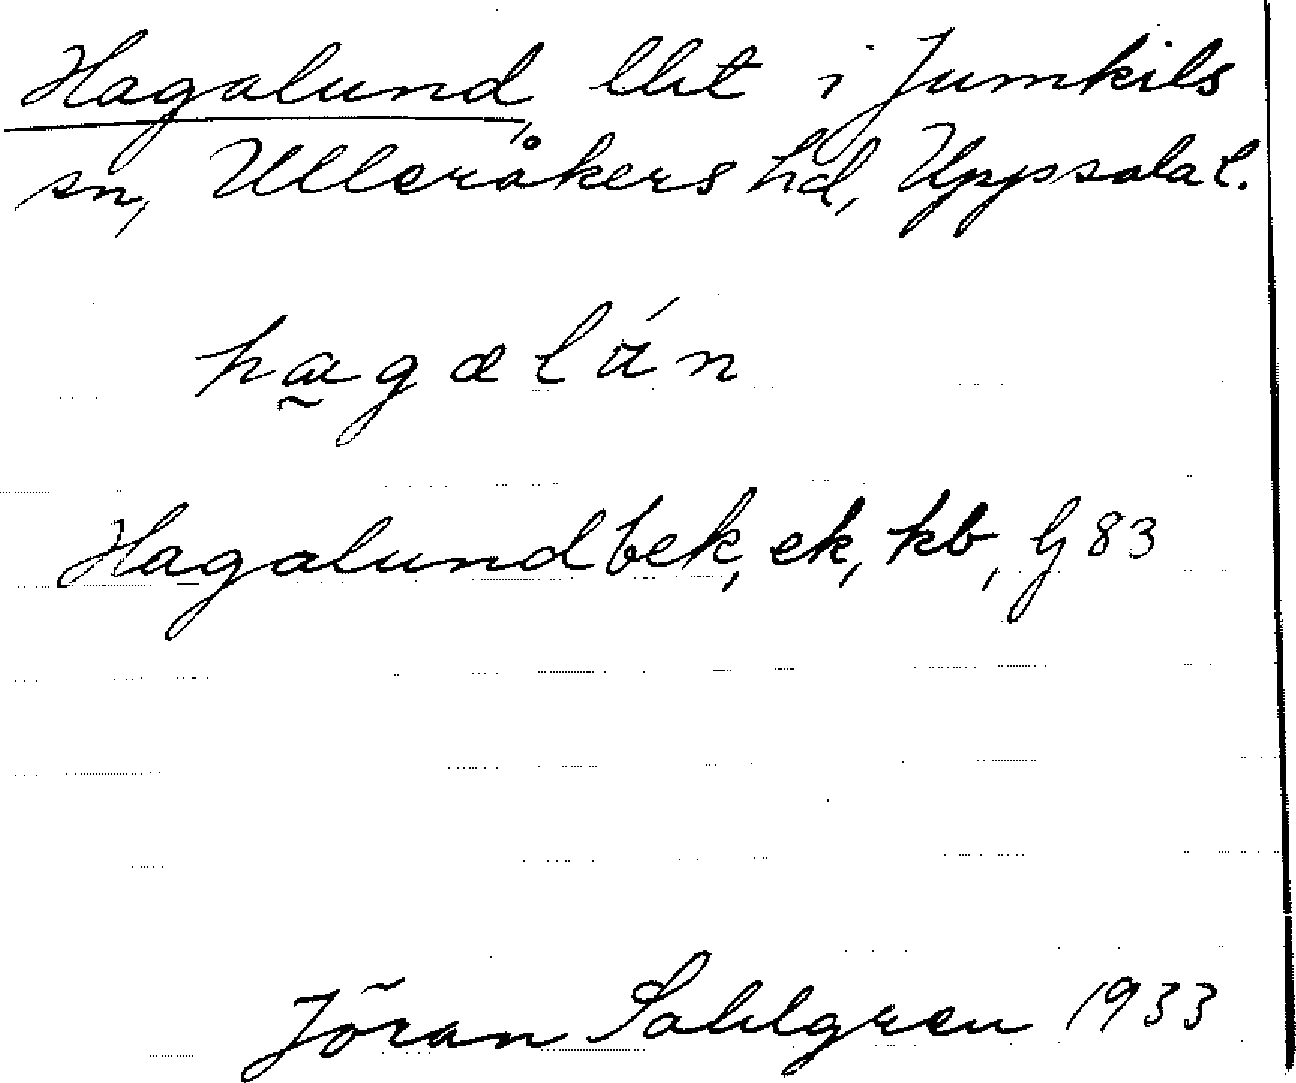 Hagalund, lht i Jumkils
sn, Ulleråkers hd, Uppsala l.
Hagalund bek, ek, kb, G 83
Jöran Sahlgren 1933